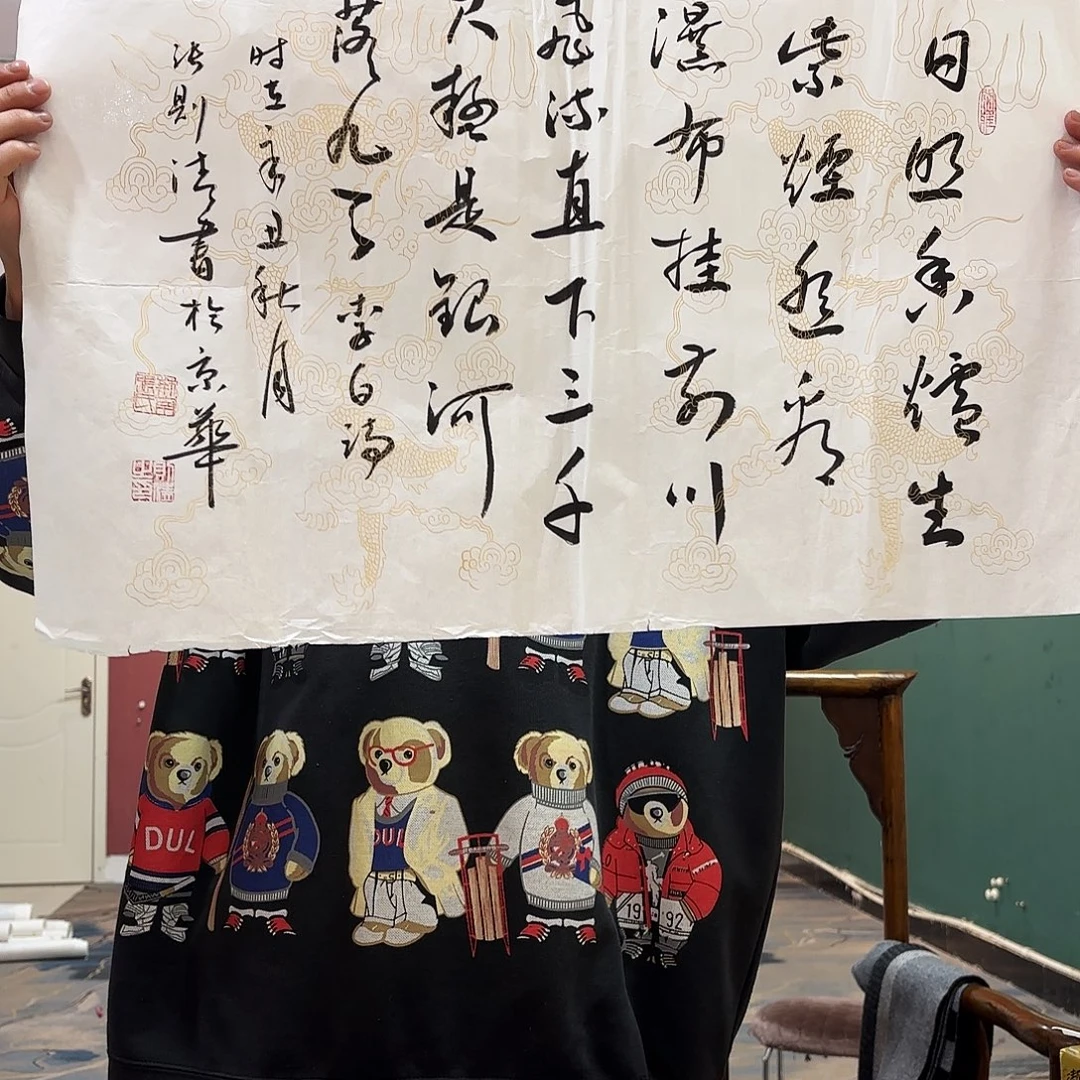 日照香爐生
紫煙遥看
瀑布挂前川
飛流直下三千
尺疑是銀河
落九天 李白詩
时在辛丑秋月
张則清書於京華
DUL
DUL
19 92